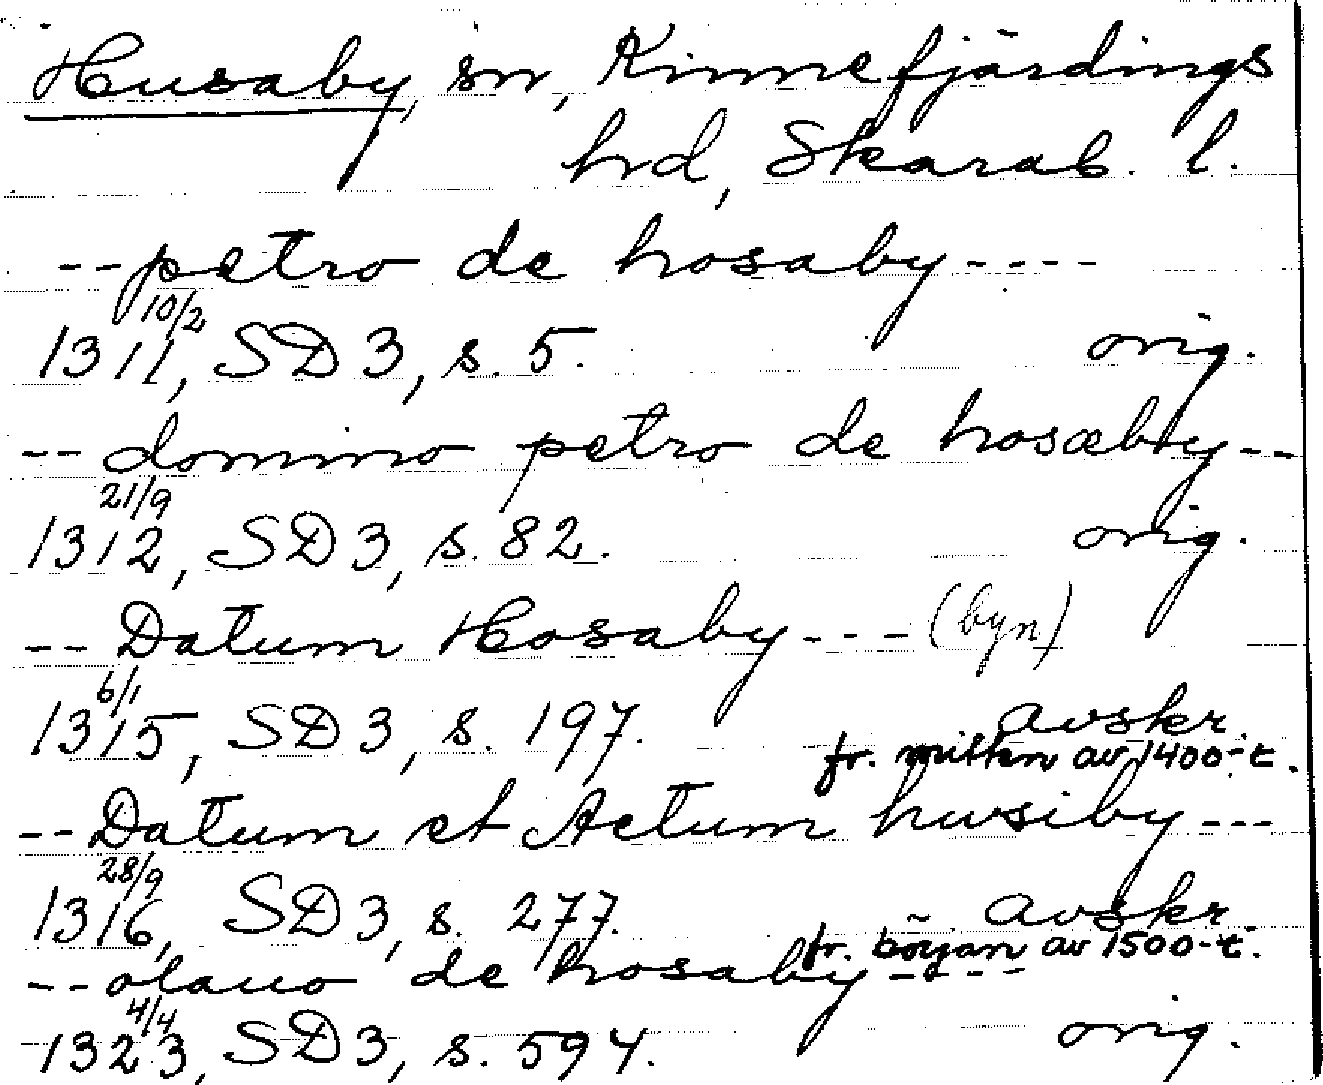 Husaby, sn, Kinnefjärdings
hrd, Skarab. l.
--petro de hosaby----
10/2
1311, SD 3, s. 5. orig.
--domino petro de hosæby--
21/9
1312, SD 3, s. 82. orig.
--Datum Hosaby---(byn)
6/1
1315, SD 3, s. 197. avskr.
fr. mitten av 1400-t.
--Datum et Actum husiby---
28/9
1316, SD 3, s. 277. avskr.
fr. början av 1500-t.
--olauo de hosaby----
4/4
1323, SD 3, s. 594. orig.